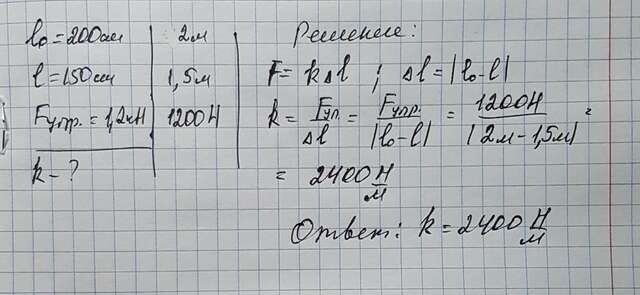 l₀ = 200см | 2м
l = 150см | 1,5м
Fупр. = 1,2кН | 1200Н
k - ?
Решение:
F = kΔl ; Δl = |l₀-l|
k = Fуп./Δl = Fупр./|l₀-l| = 1200Н/|2м-1,5м| =
= 2400 Н/м
Ответ: k = 2400 Н/м